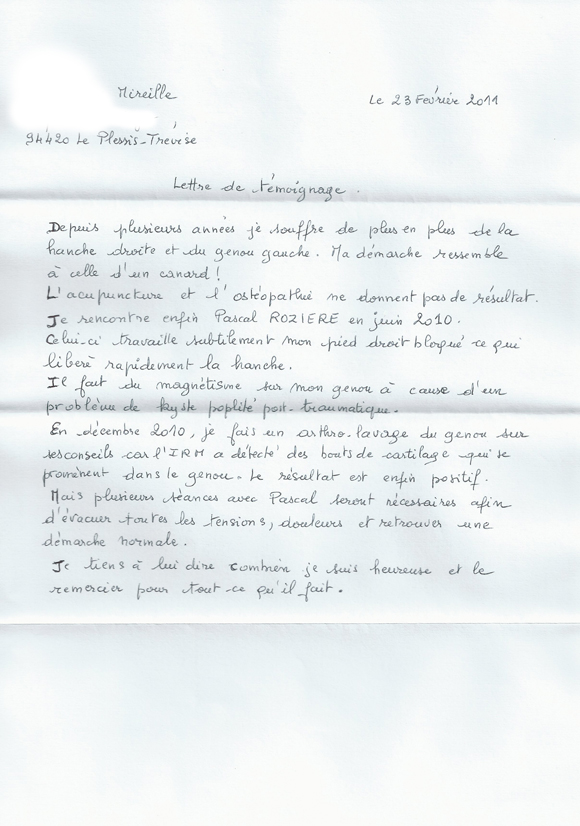 Mireille
Le 23 Février 2011
94420 Le Plessis-Trévise
Lettre de témoignage.
Depuis plusieurs années je souffre de plus en plus de la
hanche droite et du genou gauche. Ma démarche ressemble
à celle d'un canard !
L'acupuncture et l'ostéopathie ne donnent pas de résultat.
Je rencontre enfin Pascal ROZIERE en juin 2010.
Celui-ci travaille subtilement mon pied droit bloqué ce qui
libère rapidement la hanche.
Il fait du magnétisme sur mon genou à cause d'un
problème de kyste poplité post-traumatique.
En décembre 2010, je fais un arthro-lavage du genou sur
ses conseils car l'IRM a détecté des bouts de cartilage qui se
promènent dans le genou. Le résultat est enfin positif.
Mais plusieurs séances avec Pascal seront nécessaires afin
d'évacuer toutes les tensions, douleurs et retrouver une
démarche normale.
Je tiens à lui dire combien je suis heureuse et le
remercier pour tout-ce qu'il fait.